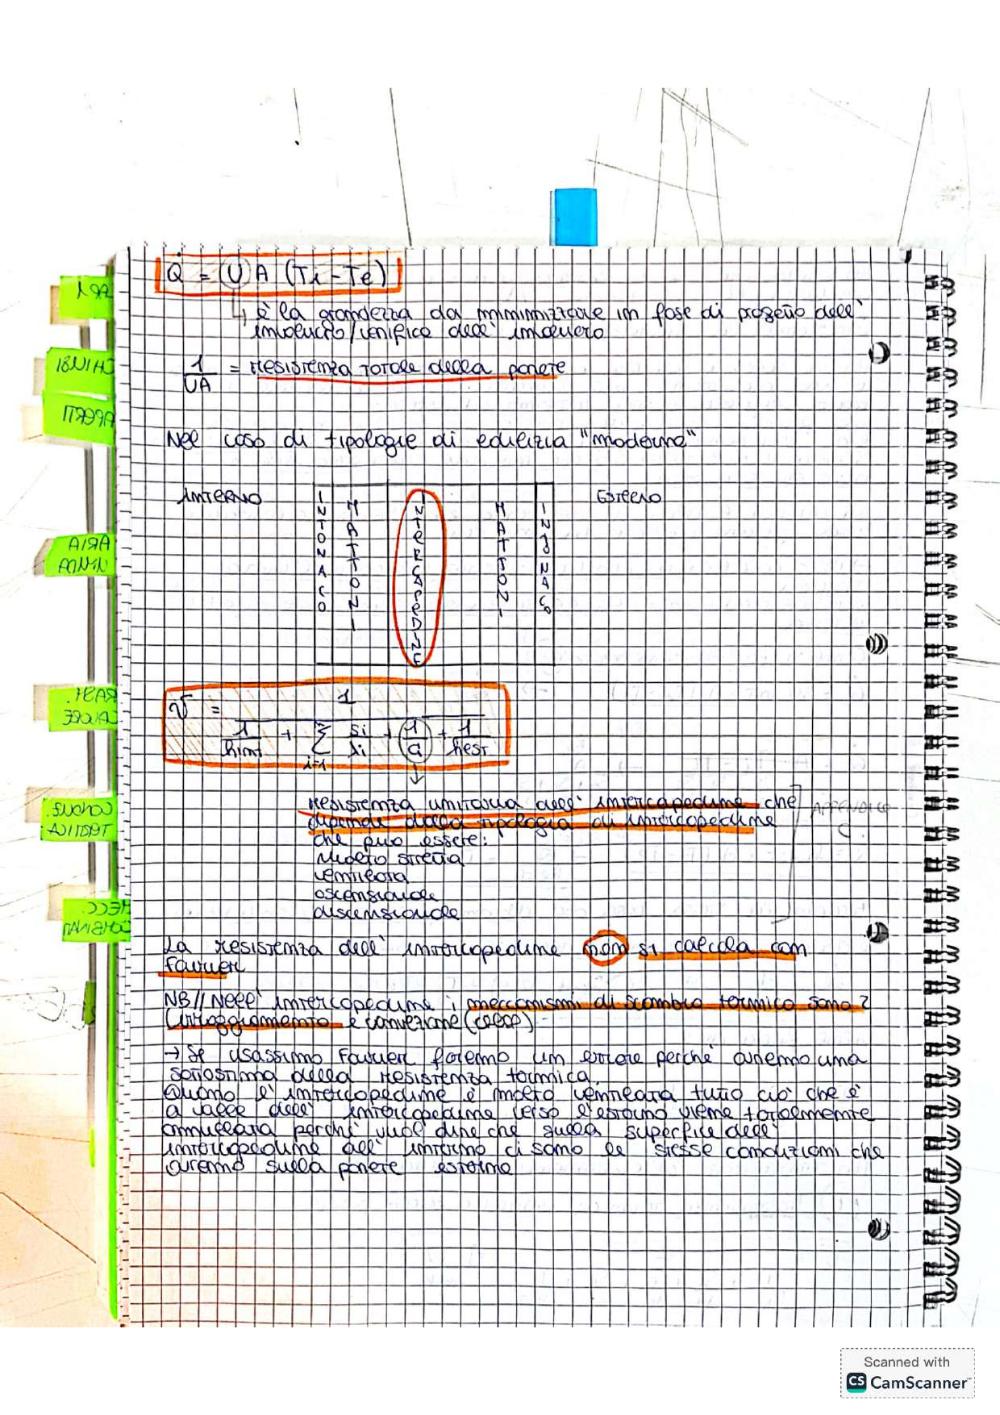 Q̇ = U A (Ti - Te)
↳ è la grandezza da minimizzare in fase di progetto dell'
involucro/verifica dell' involucro
1/UA = resistenza totale della parete
Nel caso di tipologie di edilizia "moderna"
INTERNO
INTONACO
MATTONI
INTERCAPEDINE
MATTONI
INTONACO
ESTERNO
U = 1 / (1/hint + Σ i=1 si/λi + 1/a + 1/hest)
resistenza unitaria dell' intercapedine che
dipende dalla tipologia di intercapedine
che può essere:
molto stretta
ventilata
ascensionale
discensionale
APPENDICE
C
La resistenza dell' intercapedine non si calcola con
Fourier
NB// Nell' intercapedine i meccanismi di scambio termico sono 2
(irraggiamento e convezione
→ Se usassimo Fourier faremo un errore perché avremo una
sottostima della resistenza termica
Quando l'intercapedine è molto ventilata tutto ciò che è
a valle dell' intercapedine verso l'esterno viene totalmente
annullata perché vuol dire che sulla superfice dell'
intercapedine all' interno ci sono le stesse condizioni che
avremo sulla parete esterna
CHIUSI
APERTI
ARIA
UMIDA
CALORE
Scanned with
CS CamScanner